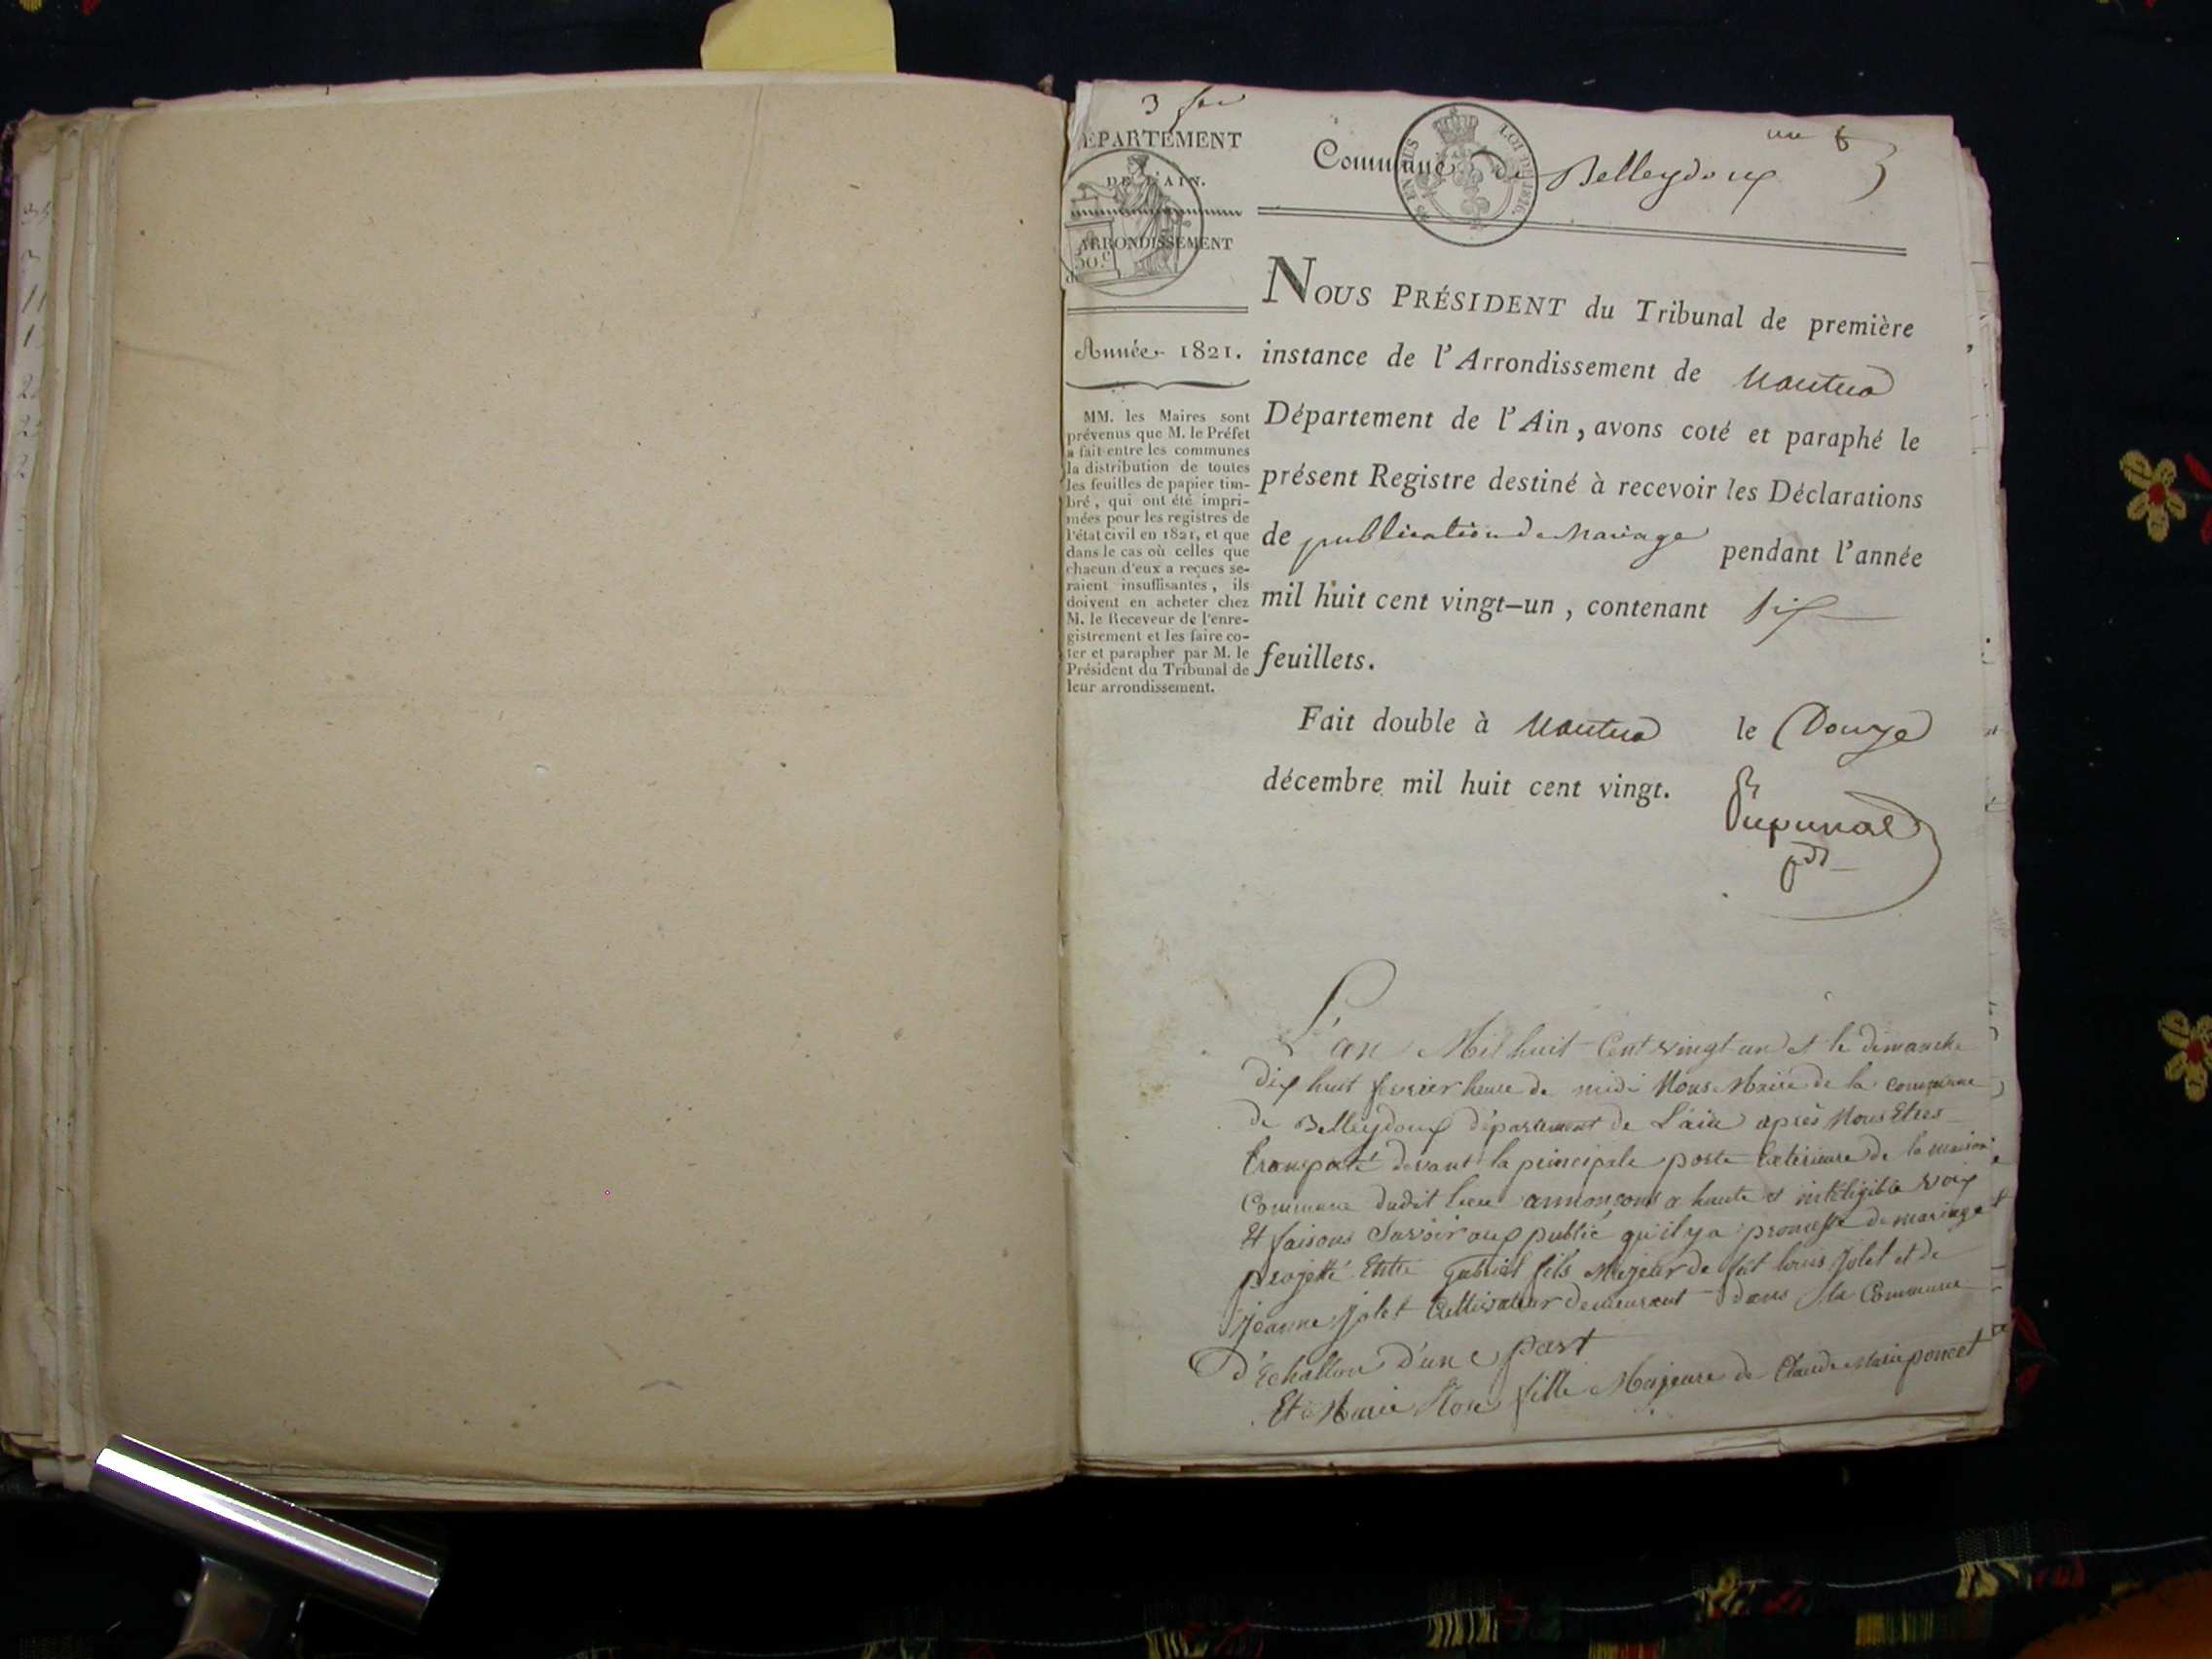 3 fer
DÉPARTEMENT
DE L'AIN.
ARRONDISSEMENT
de
50.c
Année 1821.
MM. les Maires sont
prévenus que M. le Préfet
a fait entre les communes
la distribution de toutes
les feuilles de papier tim-
bré, qui ont été impri-
mées pour les registres de
l'état civil en 1821, et que
dans le cas où celles que
chacun d'eux a reçues se-
raient insuffisantes, ils
doivent en acheter chez
M. le Receveur de l'enre-
gistrement et les faire co-
ter et parapher par M. le
Président du Tribunal de
leur arrondissement.
un
3
Commune de Belleydoux
LOI DE 1816.
EN SUS
NOUS PRÉSIDENT du Tribunal de première
instance de l'Arrondissement de Nantua
Département de l'Ain, avons coté et paraphé le
présent Registre destiné à recevoir les Déclarations
de publication de Mariage pendant l'année
mil huit cent vingt-un, contenant six
feuillets.
Fait double à Nantua le Douze
décembre mil huit cent vingt.
L'an Mil huit Cent vingt un et le dimanche
dix huit fevrier heure de midi Nous Maire de la commune
de Belleydoux département de L'ain après Nous Etres
transporté devant la principale porte Extérieure de la maison
Commune dudit lieu annonçons a haute et inteligible voix
Et faisons Savoir aux public qu'il y a promesse de mariage
projetté Entre Gabriel fils Majeur de feu louis Jolet et de
Jeanne Jolet Cultivateur demeurant dans la Commune
d'Echallon d'une part
Et Marie Rose fille Majeure de Claude Marie poncet